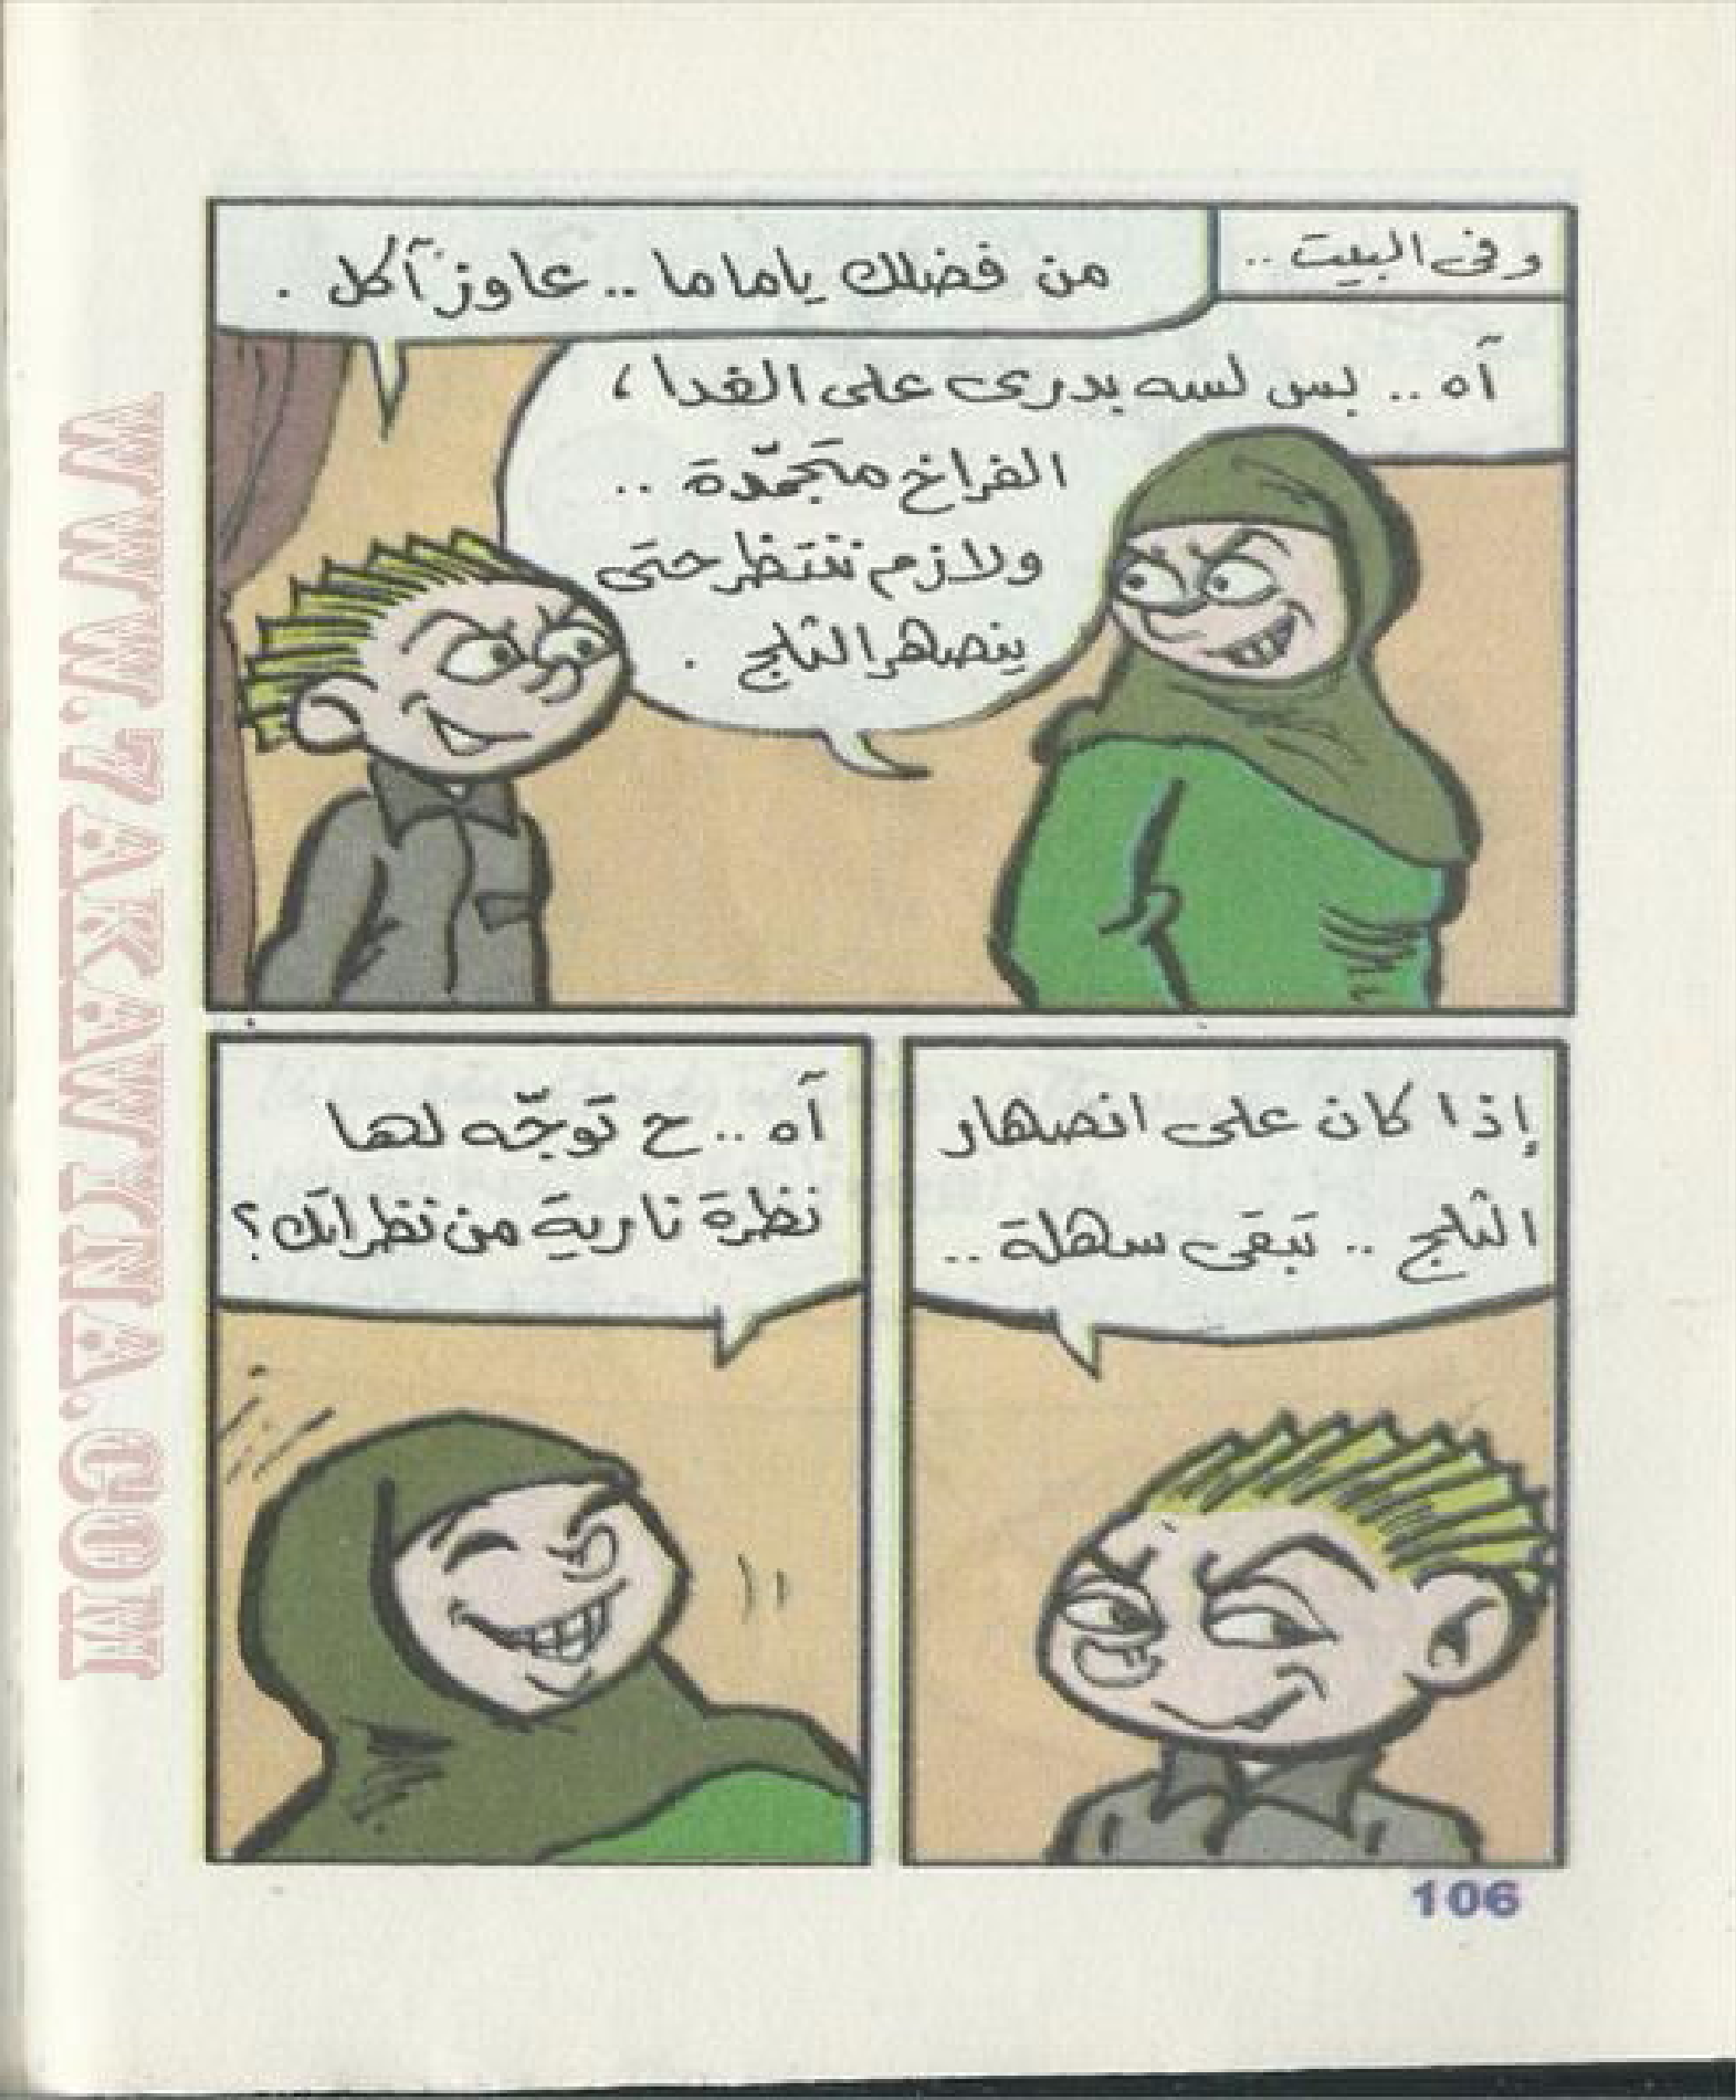 وفى البيت ..
من فضلك ياماما .. عاوز آكل .
آه .. بس لسه بدرى على الغدا ،
الفراخ متجمّدة ..
ولازم ننتظر حتى
ينصهر الثلج .
إذا كان على انصهار
الثلج .. تبقى سهلة ..
آه .. ح توجّه لها
نظرة نارية من نظراتك ؟
106
WWW.7AKAWTNA.COM